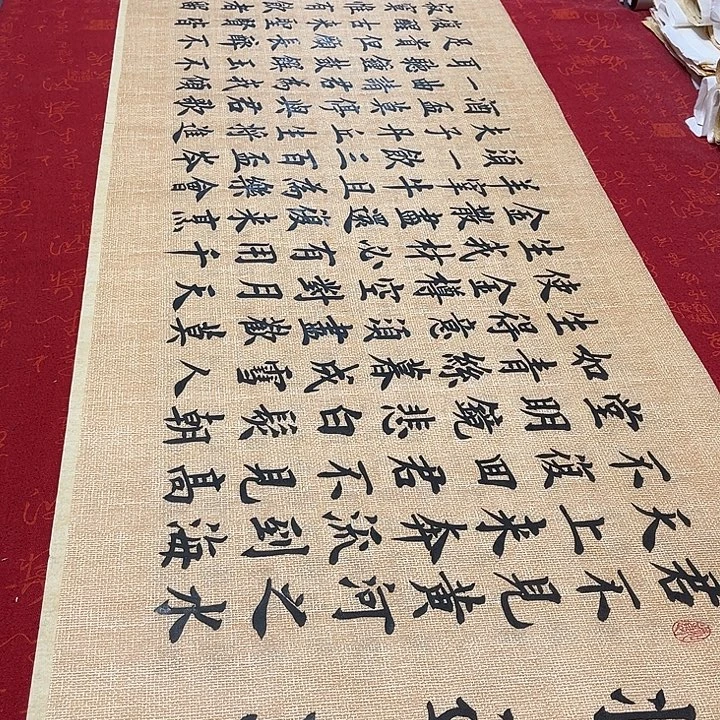 君不見黃河之水
天上来奔流到海
不復回君不見高
堂明鏡悲白髮朝
如青絲暮成雪人
生得意須盡歡莫
使金樽空對月天
生我材必有用千
金散盡還復来烹
羊宰牛且為樂會
須一飲三百盃岑
夫子丹丘生將進
酒盃莫停與君歌
一曲請君為我傾
耳聽鐘鼓饌玉不
足貴但願長醉不
復醒古来聖賢皆
寂寞惟有飲者留